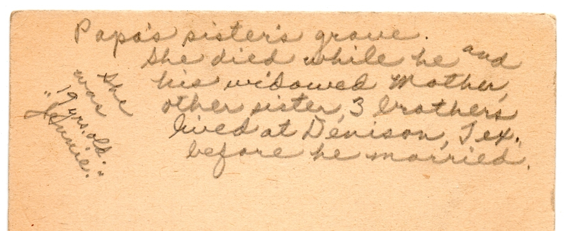 Papa's sister's grave.
She died while he and
his widowed Mother,
other sister, 3 brothers
lived at Denison, Tex.
before he married.
she
was
19 yrs old.
"Jennie."